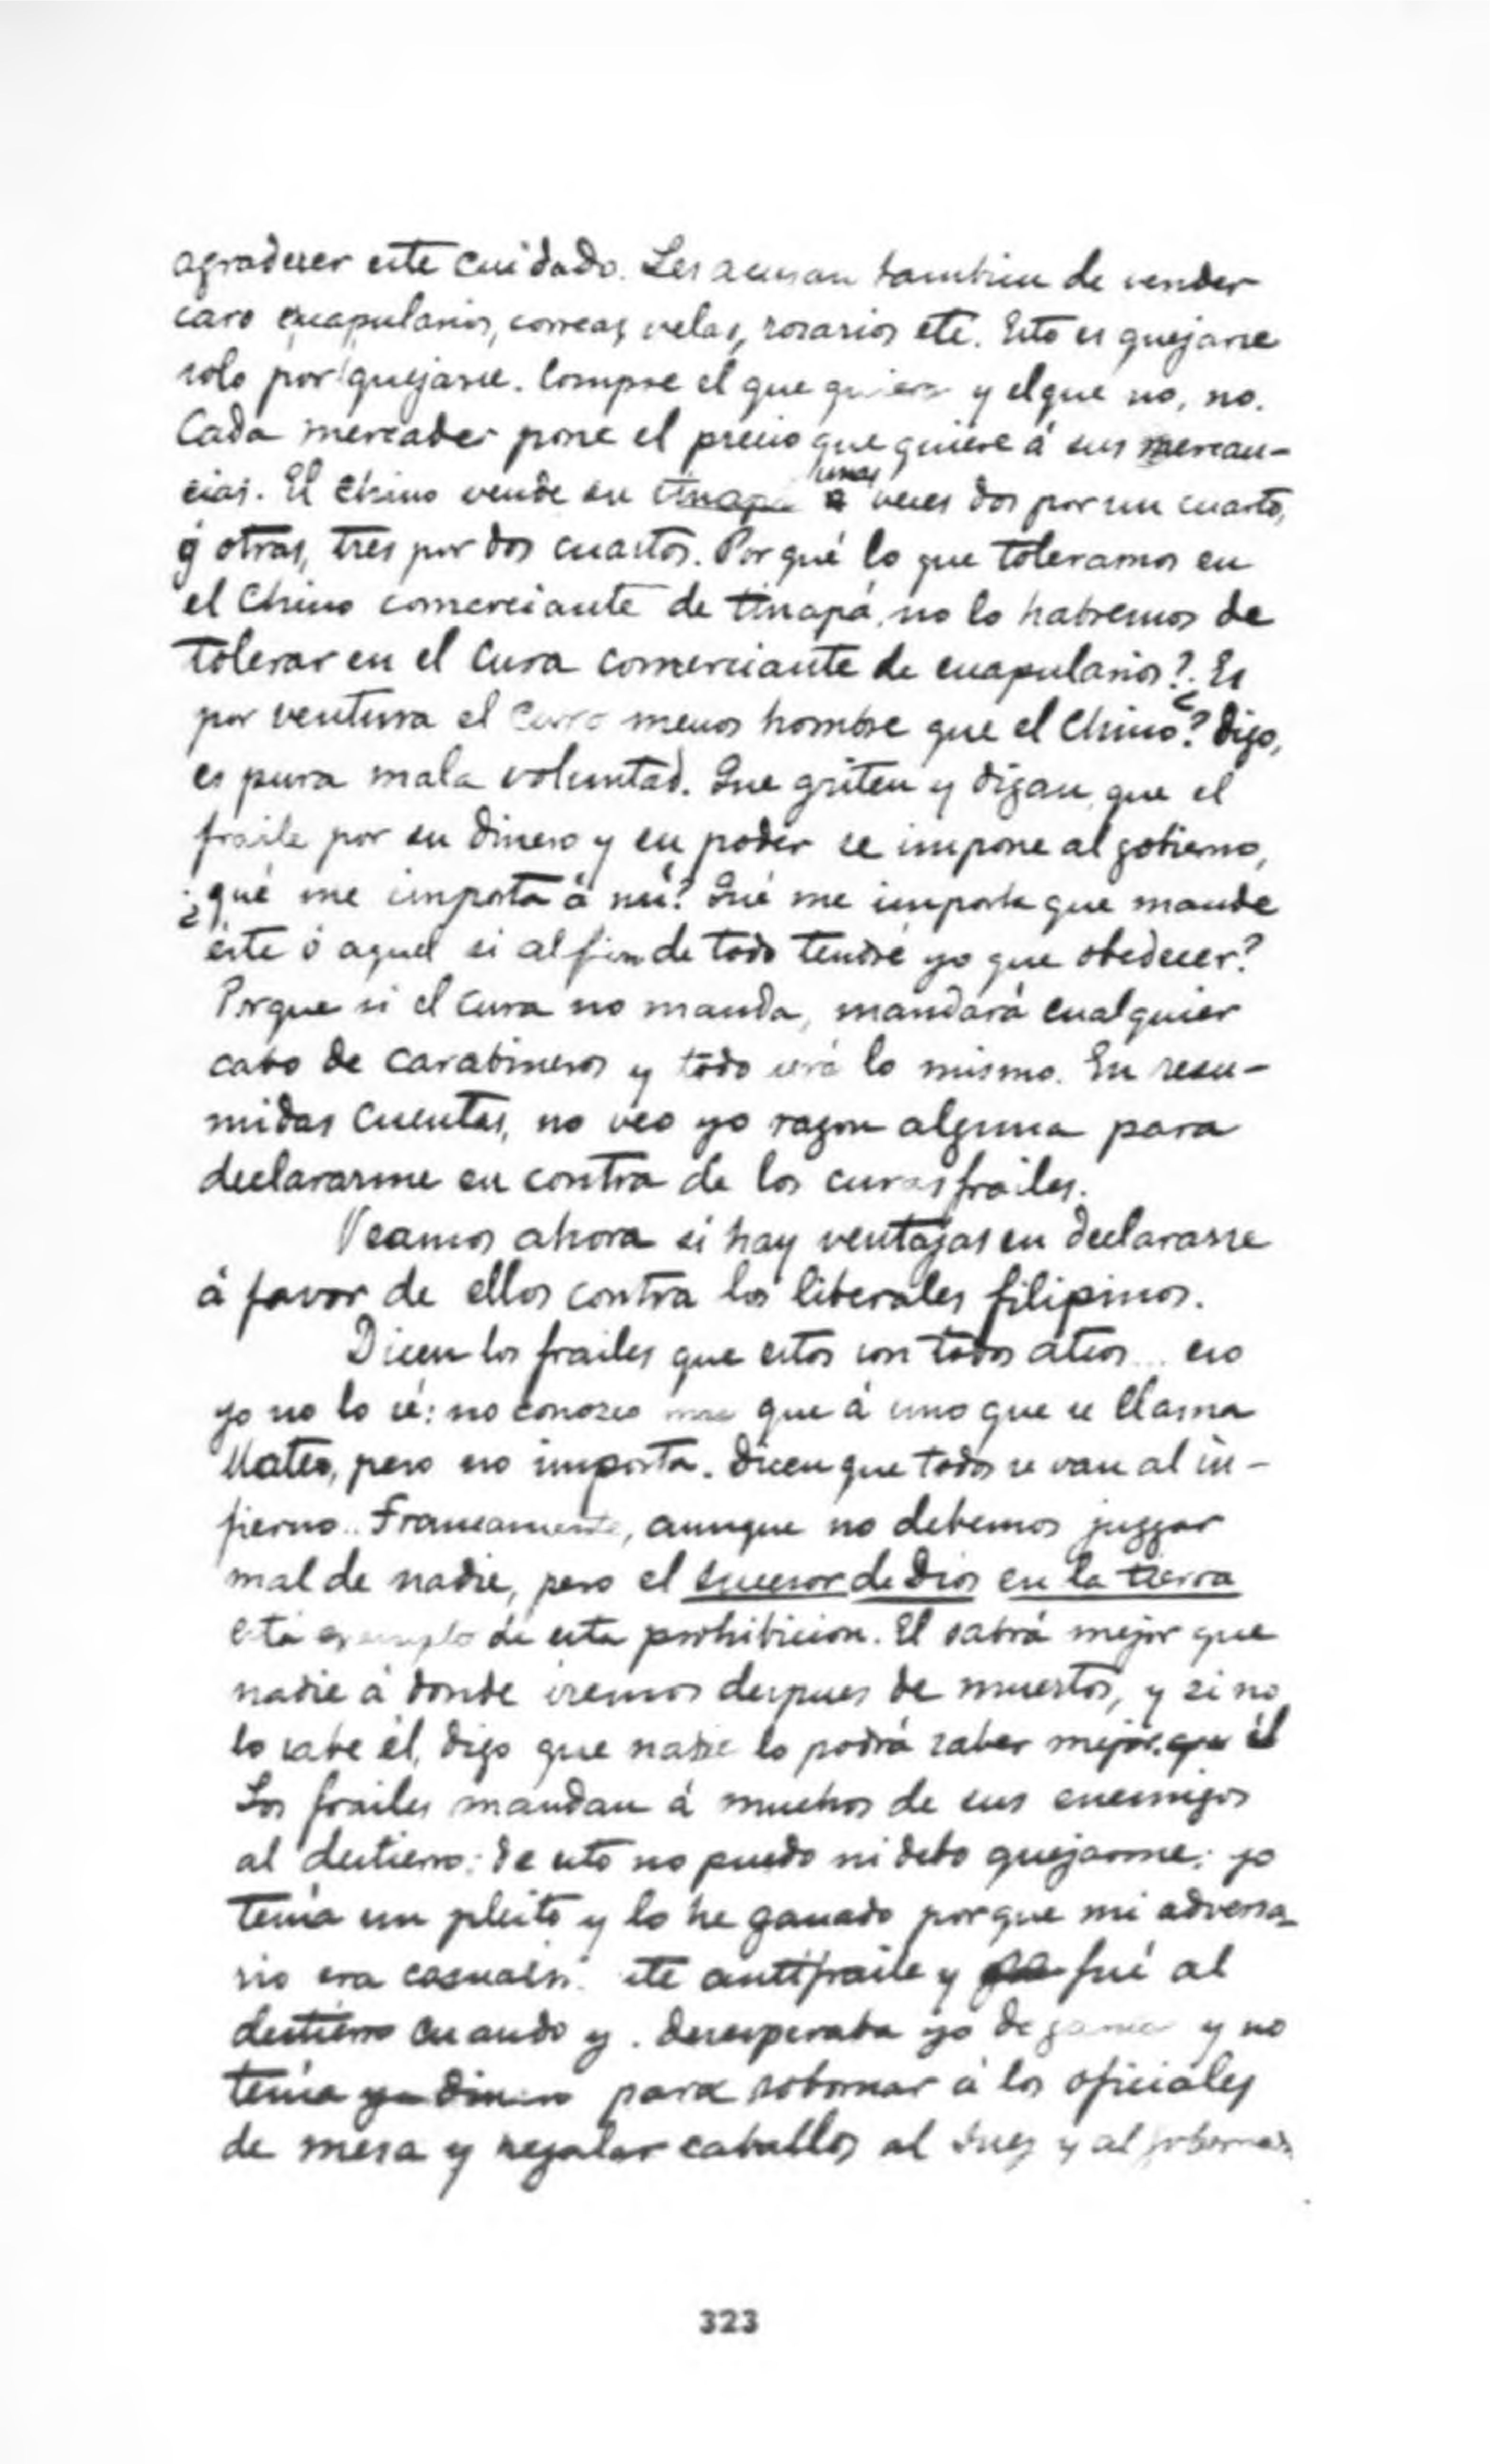 agradecer este cuidado. Les acusan tambien de vender
caro escapularios, correas, velas, rosarios etc. Esto es quejarse
solo por quejarse. Compre el que quiera y el que no, no.
Cada mercader pone el precio que quiere á sus mercan-
cias. El chino vende su tinapá unas veces dos por un cuarto,
y otras, tres por dos cuartos. Por qué lo que toleramos en
el Chino comerciante de tinapá, no lo habremos de
tolerar en el Cura comerciante de escapularios? ¿Es
por ventura el Cura menos hombre que el Chino? Digo,
es pura mala voluntad. Que griten y digan que el
fraile por su dinero y su poder se impone al gobierno,
¿qué me importa á mí? Qué me importa que mande
éste ó aquel si al fin de todo tendré yo que obedecer?
Porque si el Cura no manda, mandará cualquier
cabo de carabineros y todo será lo mismo. En resu-
midas cuentas, no veo yo razon alguna para
declararme en contra de los curas frailes.
Veamos ahora si hay ventajas en declararse
á favor de ellos contra los liberales filipinos.
Dicen los frailes que estos son todos ateos... eso
yo no lo sé: no conozco mas que á uno que se llama
Mateo, pero no importa. Dicen que todos se van al in-
fierno.. Francamente, aunque no debemos juzgar
mal de nadie, pero el sucesor de Dios en la tierra
está de esta prohibicion. El sabrá mejor que
nadie á donde iremos despues de muertos, y si no
lo sabe él, digo que nadie lo podrá saber mejor que él
Los frailes mandan á muchos de sus enemigos
al destierro: de esto no puedo ni debo quejarme: yo
tenía un pleito y lo he ganado porque mi adversa-
rio era antifraile y fué al
destierro cuando desesperaba yo de ganar y no
tenía yo dinero para sobornar á los oficiales
de mesa y regalar caballos al Juez y al
323